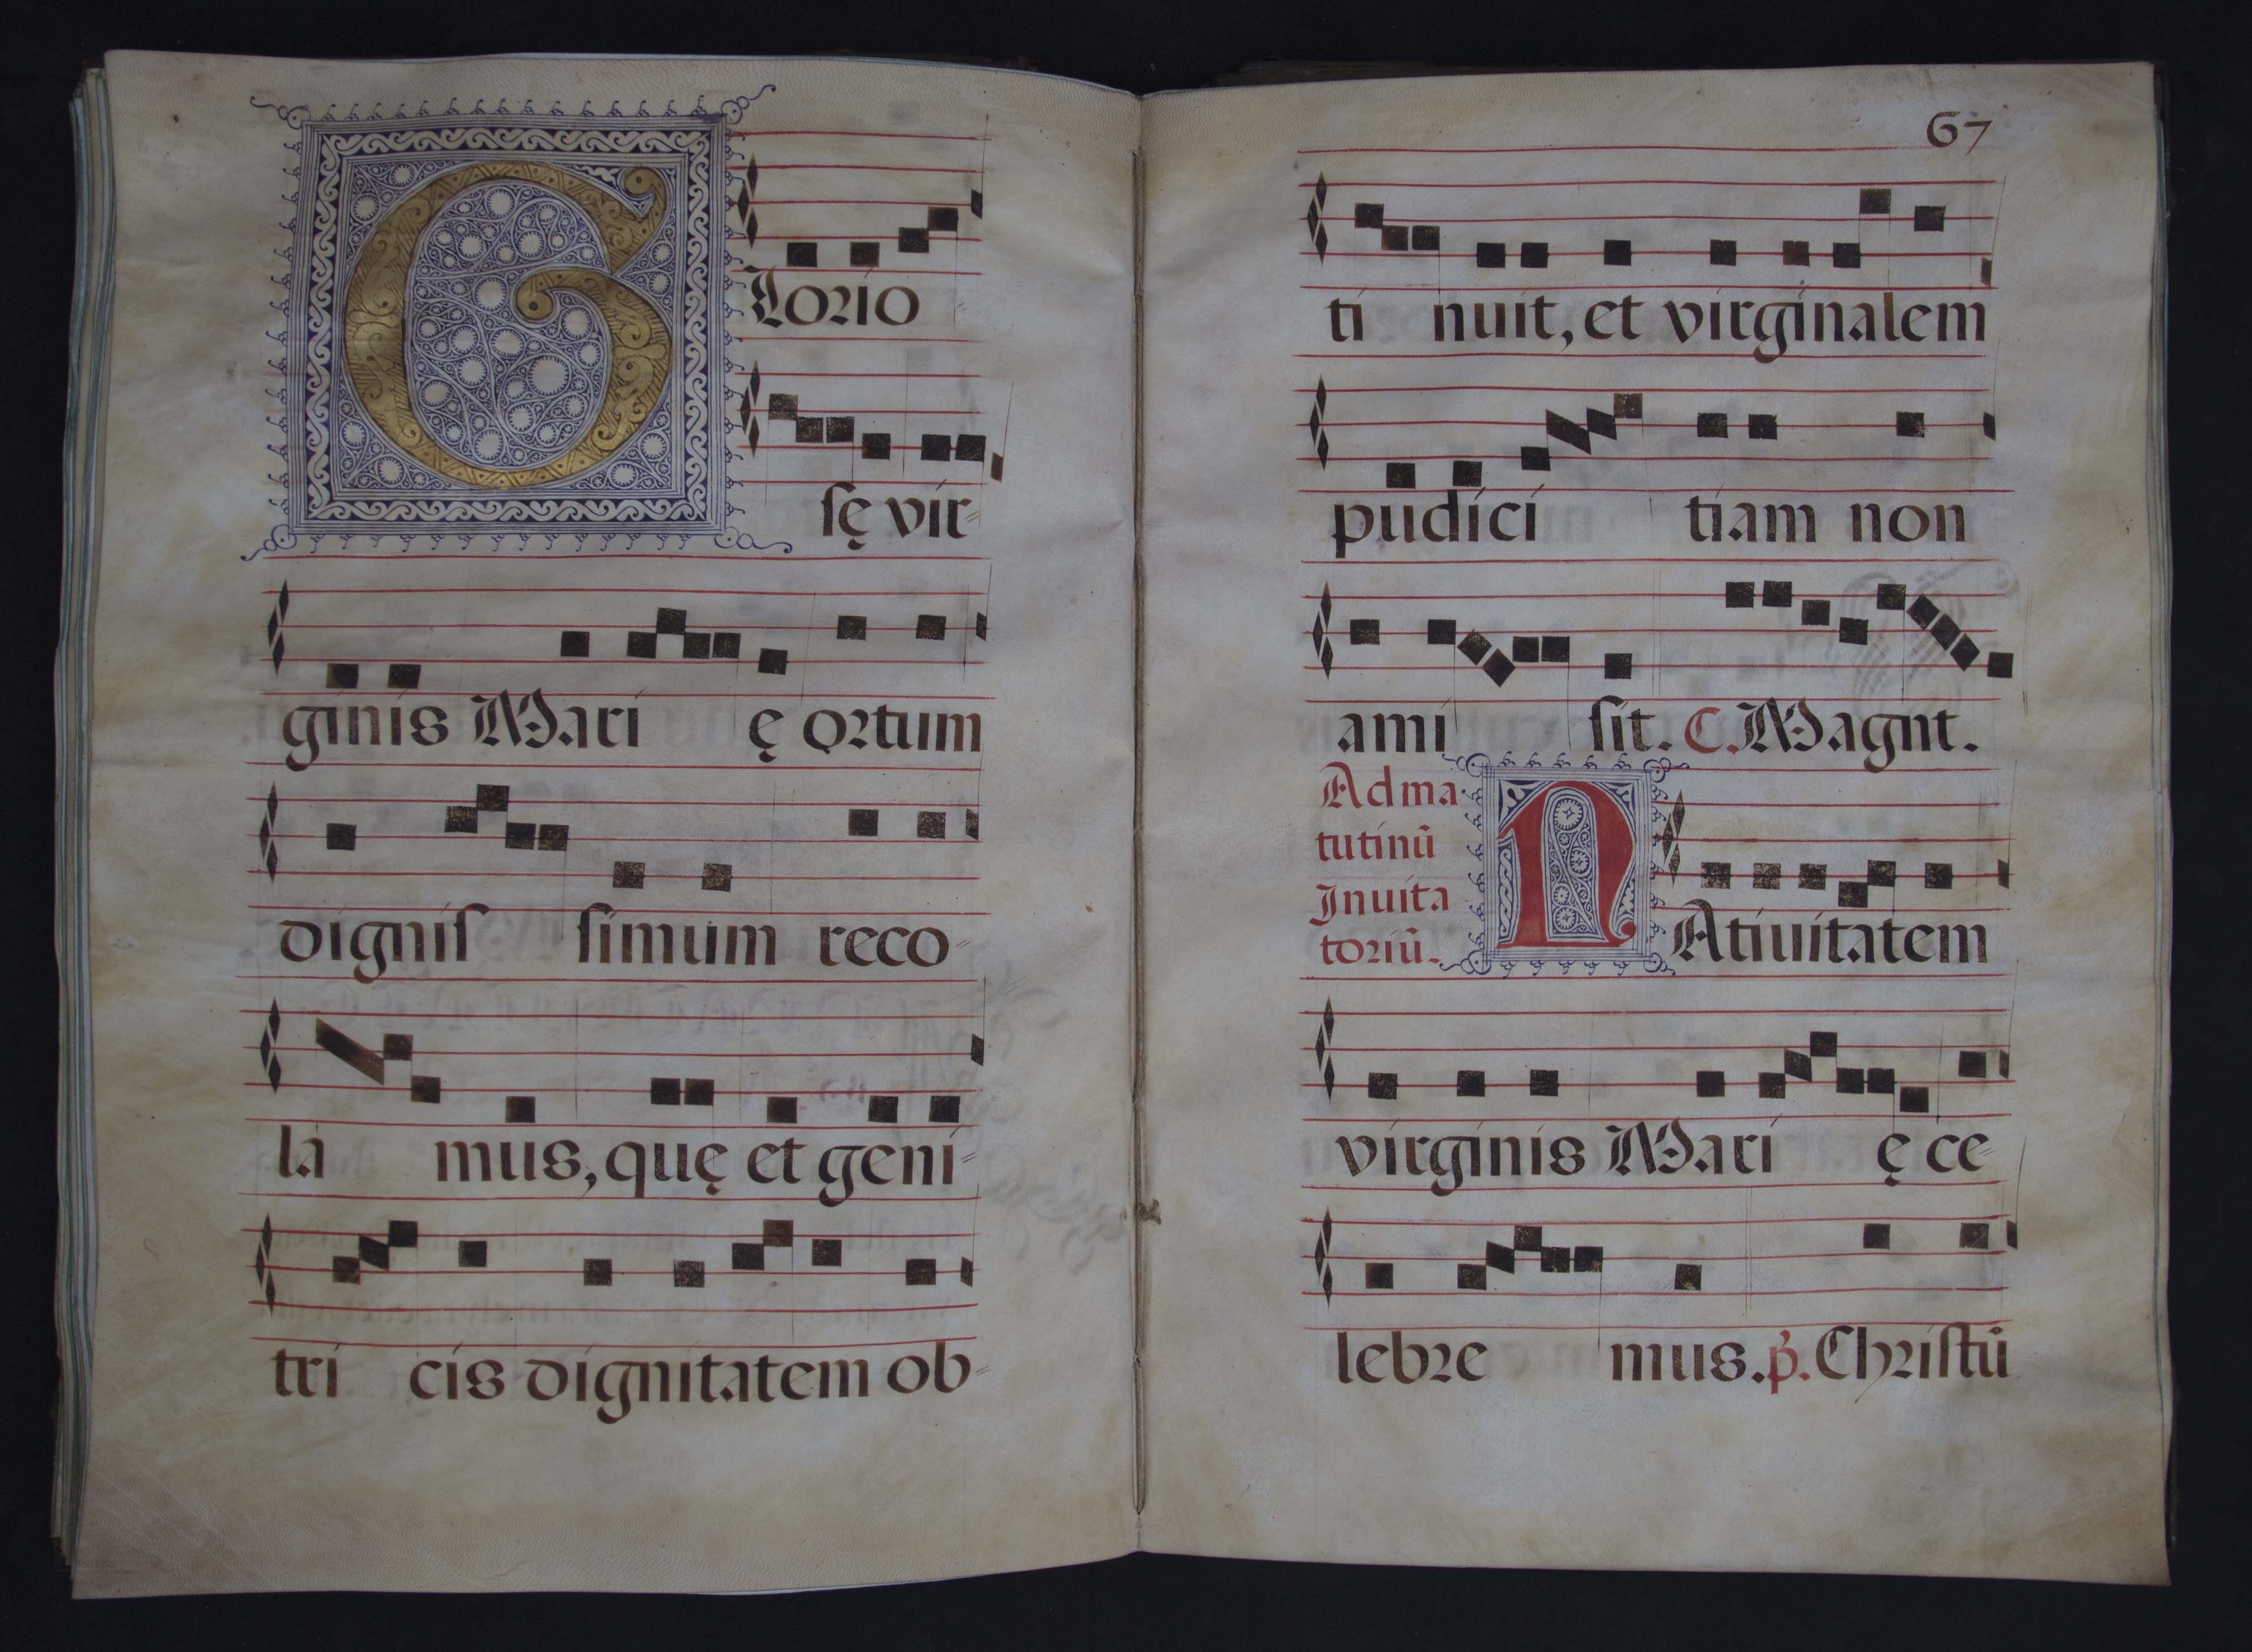 Glorio-
sę vir-
ginis Mari ę ortum
dignis simum reco-
la mus, quę et geni-
tri cis dignitatem ob-
67
ti nuit, et virginalem
pudici tiam non
ami sit. C. Magnt.
Ad ma
tutinū
Inuita
toriū.
NAtiuitatem
virginis Mari ę ce-
lebre mus. p̄. Christū